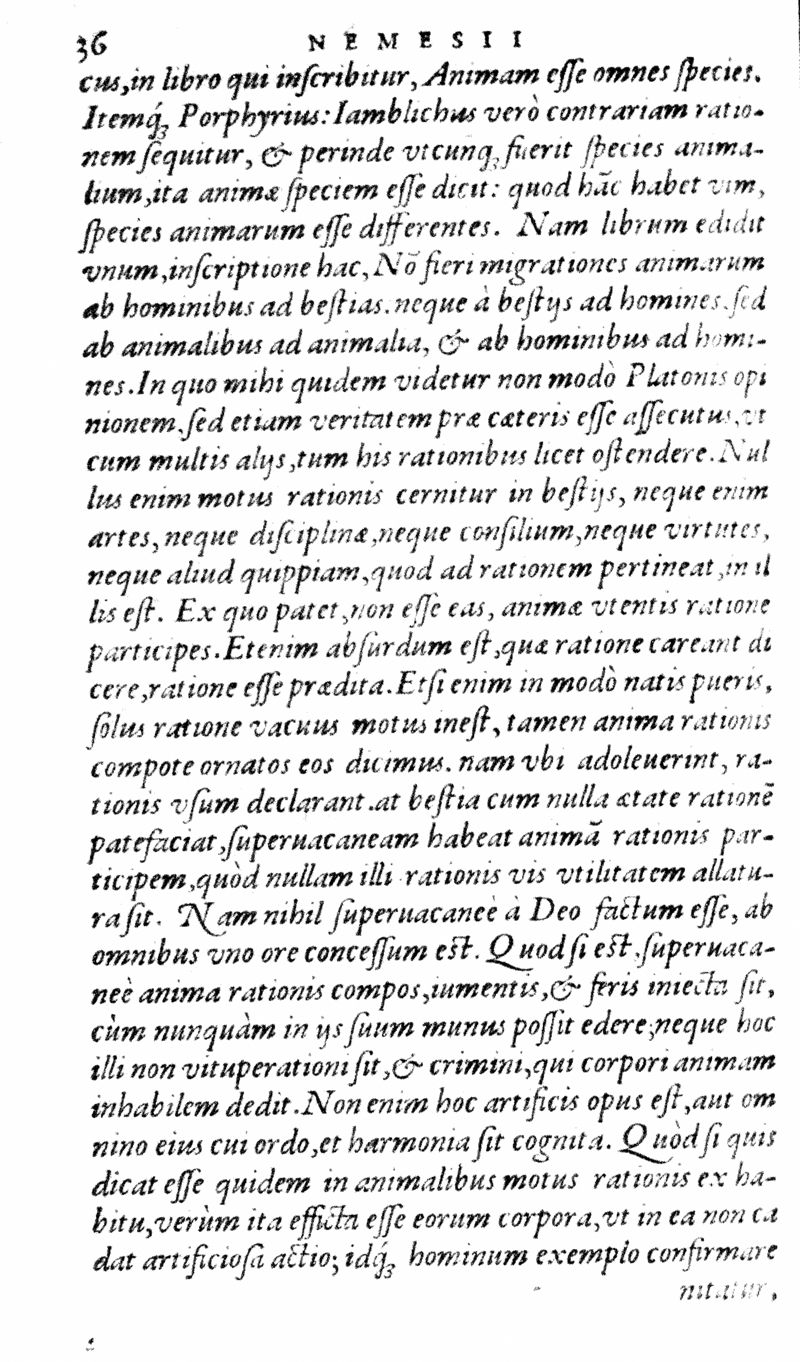 36 NEMESII
cus,in libro qui inſcribitur, Animam eſſe omnes ſpecies.
Itemq́ꝫ Porphyrius: Iamblichus verò contrariam ratio-
nem ſequitur, & perinde vtcunqꝫ fuerit ſpecies anima-
lium,ita animæ ſpeciem eſſe dicit: quod hāc habet vim,
ſpecies animarum eſſe differentes. Nam librum edidit
vnum,inſcriptione hac, Nō fieri migrationes animarum
ab hominibus ad beſtias.neque à beſtijs ad homines.ſed
ab animalibus ad animalia, & ab hominibus ad homi-
nes.In quo mihi quidem videtur non modò Platonis opi
nionem,ſed etiam veritatem præ cæteris eſſe aſſecutus,vt
cum multis alijs,tum his rationibus licet oſtendere.Nul
lus enim motus rationis cernitur in beſtijs, neque enim
artes, neque diſciplinæ,neque conſilium,neque virtutes,
neque aliud quippiam,quod ad rationem pertineat,in il
lis eſt. Ex quo patet,non eſſe eas, animæ vtentis ratione
participes.Etenim abſurdum eſt,quæ ratione careant di
cere,ratione eſſe prædita.Etſi enim in modò natis pueris,
ſolus ratione vacuus motus ineſt, tamen anima rationis
compote ornatos eos dicimus. nam vbi adoleuerint, ra-
tionis vſum declarant.at beſtia cum nulla ætate rationē
patefaciat,ſuperuacaneam habeat animā rationis par-
ticipem,quòd nullam illi rationis vis vtilitatem allatu-
ra ſit. Nam nihil ſuperuacaneè à Deo factum eſſe, ab
omnibus vno ore conceſſum eſt. Quod ſi eſt,ſuperuaca-
neè anima rationis compos,iumentis,& feris iniecta ſit,
cùm nunquàm in ijs ſuum munus poſſit edere;neque hoc
illi non vituperationi ſit,& crimini,qui corpori animam
inhabilem dedit.Non enim hoc artificis opus eſt,aut om
nino eius cui ordo,et harmonia ſit cognita. Quòd ſi quis
dicat eſſe quidem in animalibus motus rationis ex ha-
bitu,verùm ita efficta eſſe eorum corpora,vt in ea non ca
dat artificioſa actio; idq́ꝫ hominum exemplo confirmare
nitatur,